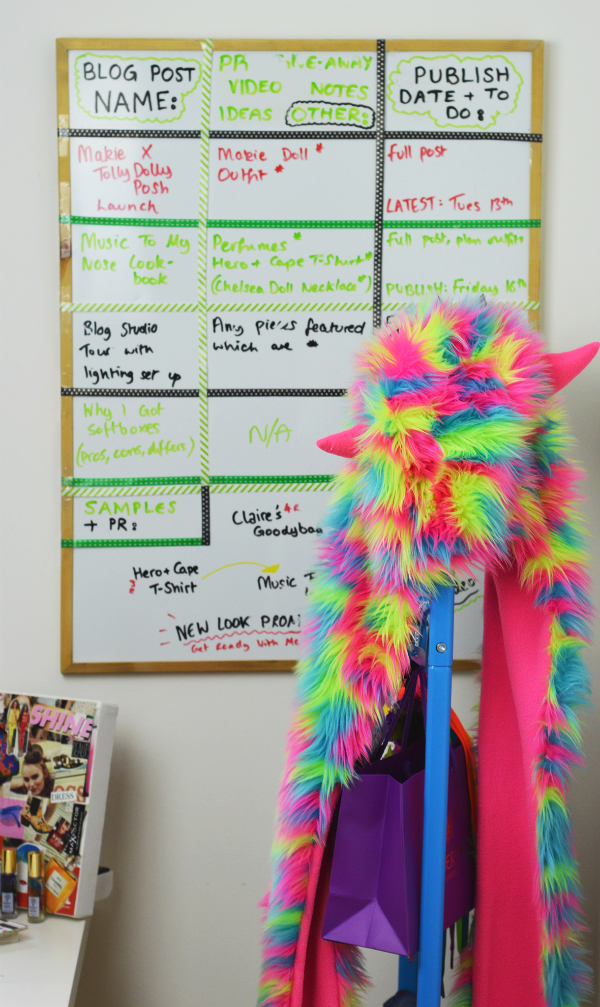 BLOG POST
NAME:
PR
VIDEO NOTES
IDEAS OTHER:
PUBLISH
DATE + TO
DO:
Makie X
Tolly Dolly
Posh
Launch
Makie Doll *
Outfit *
full post
LATEST: Tues 13th
Music To My
Nose Look-
book
Perfumes *
Hero + Cape T-Shirt *
(Chelsea Doll Necklace *)
full post, plan outfit
PUBLISH: Friday 16th
Blog Studio
Tour with
lighting set up
Any pieces featured
which are *
Why I Got
Softboxes
(pros, cons, differs)
N/A
SAMPLES
+ PR:
Claire's
Goodybag
Hero + Cape
T-Shirt
Music
NEW LOOK
Get Ready With Me
SHINE
DRESS